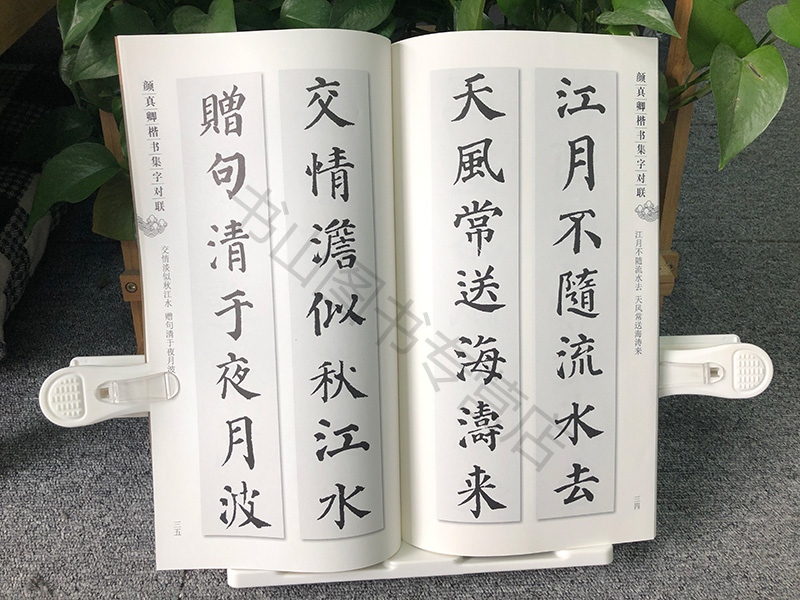 颜真卿楷书集字对联
江月不随流水去 天风常送海涛来
三四
江月不隨流水去
天風常送海濤来
交情澹似秋江水
贈句清于夜月波
颜真卿楷书集字对联
交情淡似秋江水 赠句清于夜月波
三五
书山图书专营店